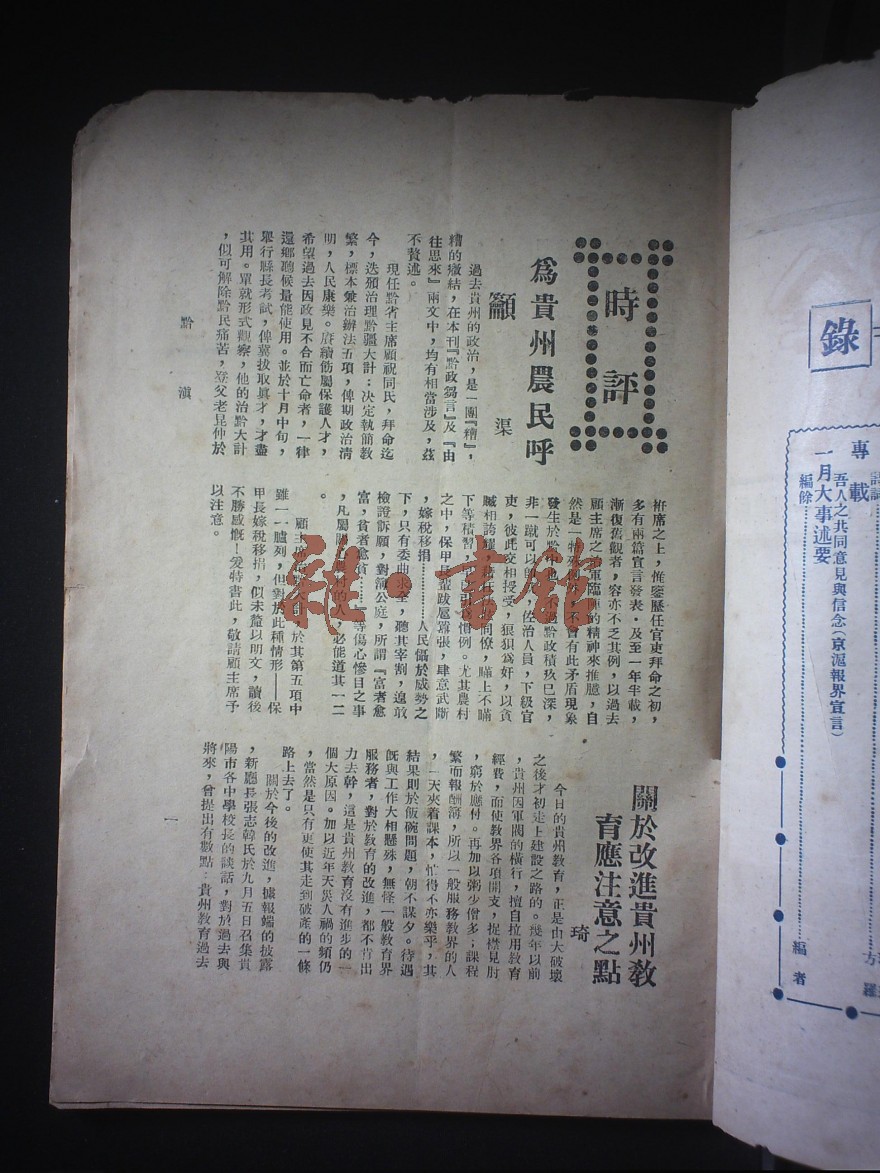 時評
為貴州農民呼
籲
渠
過去貴州的政治，是一團『糟』，
糟的癥結，在本刊『黔政芻言』及『由
往思來』兩文中，均有相當涉及，茲
不贅述。
現任黔省主席顧祝同氏，拜命迄
今，迭頒治理黔疆大計：决定執簡教
繁，標本兼治辦法五項，俾期政治清
明，人民康樂。賡續飭屬保護人才，
希望過去因政見不合而亡命者，一律
還鄉聽候量能使用。並於十月中旬，
舉行縣長考試，俾冀拔取眞才，才盡
其用。單就形式觀察，他的治黔大計
，似可解除黔民痛苦，登父老昆仲於
袵席之上，惟鑒歷任官吏拜命之初，
多有兩篇宣言發表。及至一年半載，
漸復舊觀者，容亦不乏其例，以過去
顧主席之治軍臨陣的精神來推臆，自
然是一特殊例外，不會有此矛盾現象
發生於黔中也。不過黔政積玖巳深，
非一蹴可以
，佐治人員，下級官
吏，彼此交相授受，狠狽爲奸，以貪
贓相誇耀，
同僚，瞞上不瞞
下等積習，
慣例。尤其農村
之中，保甲長輩跋扈囂張，肆意武斷
，嫁稅移捐…………人民懾於威勢之
下，只有委曲求全，聽其宰割，遑敢
檢證訴願，對簿公庭，所謂『富者愈
富，貧者愈貧……』等傷心慘目之事
，凡屬關心農村的人，必能道其一二
。
顧主席治黔大計，於其第五項中
雖一一臚列，但對於此種情形——保
甲長嫁稅移捐，似未釐以明文，讀後
不勝感慨！爰特書此，敬請顧主席予
以注意。
關於改進貴州教
育應注意之點
琦
今日的貴州教育，正是由大破壞
之後才初走上建設之路的。幾年以前
，貴州因軍閥的橫行，擅自拉用教育
經費，而使教界各項開支，捉襟見肘
，窮於應付。再加以粥少僧多；課程
繁而報酬薄，所以一般服務教界的人
，一天夾着課本，忙得不亦樂乎，其
結果則於飯碗問題，朝不謀夕。待遇
旣與工作大相懸殊，無怪一般教育界
服務者，對於教育的改進，都不肯出
力去幹，這是貴州教育沒有進步的一
個大原因。加以近年天災人禍的頻仍
，當然是只有更使其走到破產的一條
路上去了。
關於今後的改進，據報端的披露
，新廳長張志韓氏於九月五日召集貴
陽市各中學校長的談話，對於過去與
將來，曾提出有數點：貴州教育過去
黔滇
一
錄
專載
吾人之共同意見與信念（京滬報界宣言）
一月大事述要
編餘
編者
社·書館